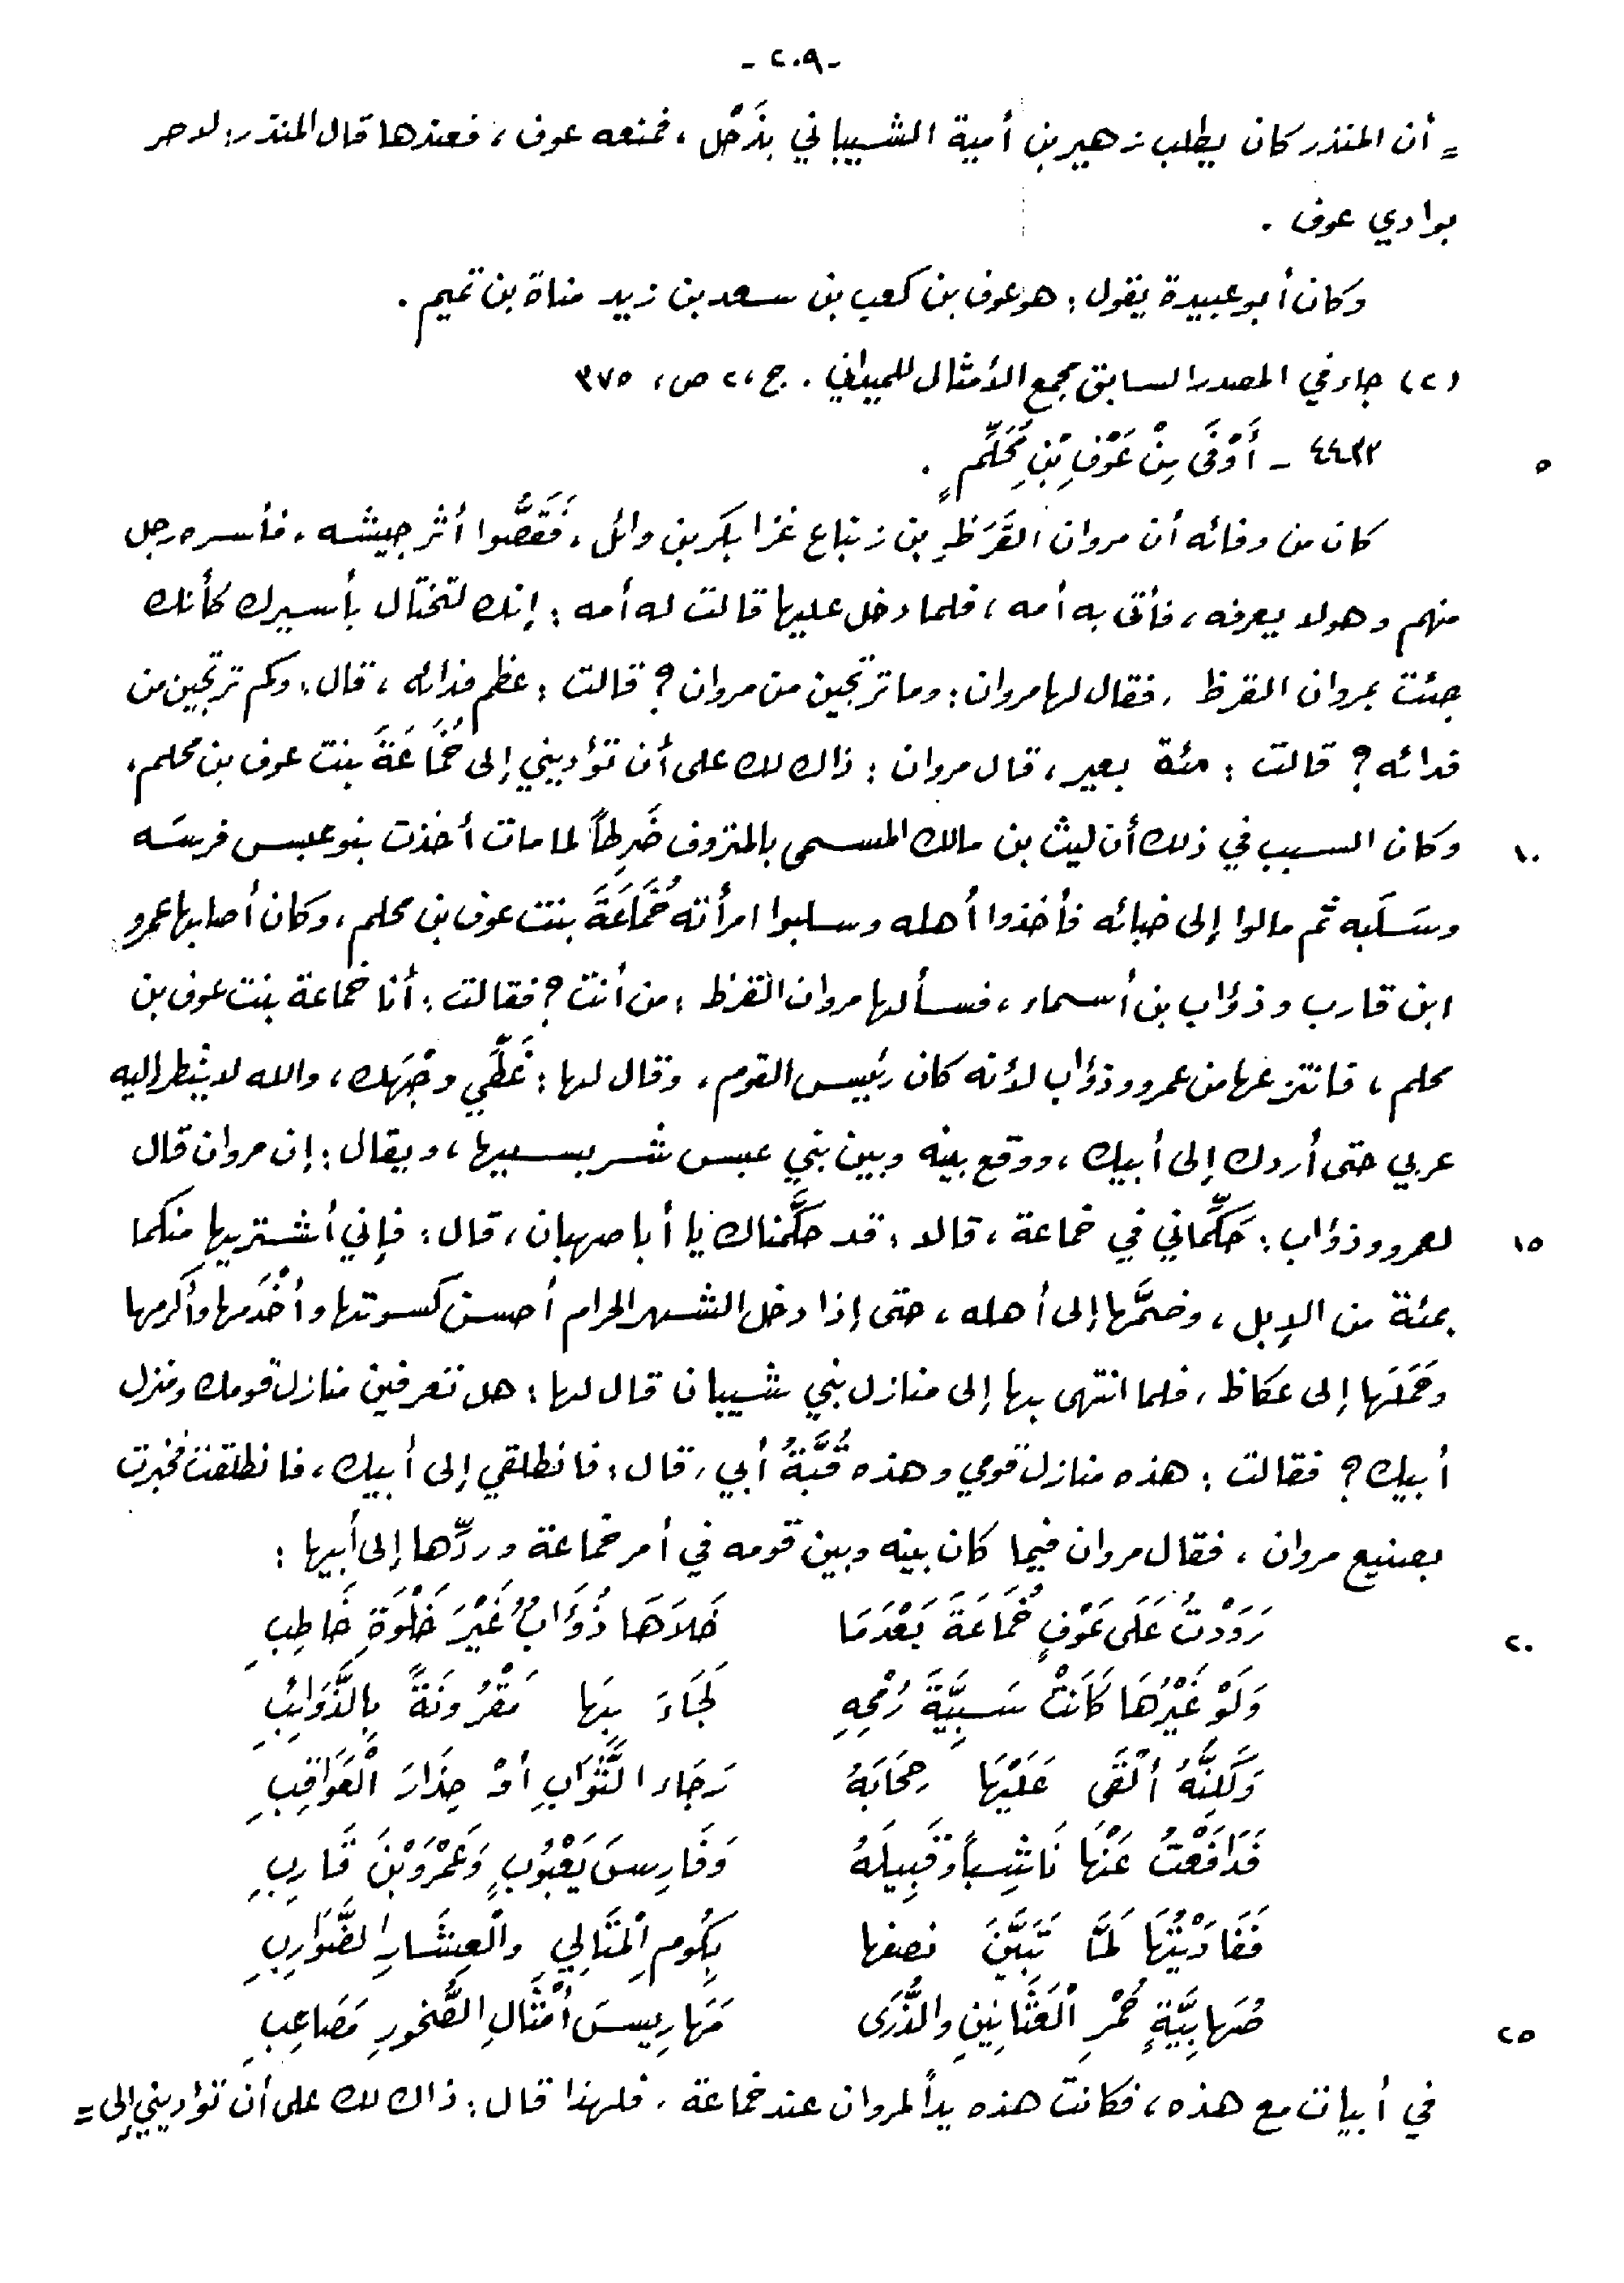 - ٢٠٩ -
= أن المنذر كان يطلب زهير بن أمية الشيباني بذَحْل ، فمنعه عوف ، فعندها قال المنذر: لا حر
بوادي عوف .
وكان أبو عبيدة يقول : هو عوف بن كعب بن سعد بن زيد مناة بن تميم .
(٢) جاء في المصدر السابق مجمع الأمثال للميداني . ج ، ٢ ص ، ٣٧٥
٥ ٤٤٣٣ - أَوْفَى مِنْ عَوْفِ بْنِ مُحَلِّمٍ .
كان من وفائه أن مروان القَرَظِ بن زنباع غزا بكر بن وائل ، فَقَصُّوا أثر جيشه ، فأسره رجل
منهم وهو لا يعرفه ، فأتى به أمه ، فلما دخل عليها قالت له أمه : إنك لتختال بأسيرك كأنك
جئت بمروان القرظ ، فقال لها مروان : وما ترتجين من مروان ؟ قالت : عظم فدائه ، قال : وكم ترتجين من
فدائه ؟ قالت : مئة بعير ، قال مروان : ذاك لك على أن تؤديني إلى خُمَاعَةَ بنت عوف بن محلم ،
١٠ وكان السبب في ذلك أن ليث بن مالك المسمى بالمنزوف ضَرِطاً لما مات أخذت بنو عبس فرسَه
وسَلَبه ثم مالوا إلى خبائه فأخذوا أهله وسلبوا امرأته خُمَّاعَةَ بنت عوف بن محلم ، وكان أصابها عمرو
ابن قارب وذؤاب بن أسماء ، فسألها مروان القرظ : من أنت ؟ فقالت : أنا خماعة بنت عوف بن
محلم ، فانتزعها من عمرو وذؤاب لأنه كان رئيس القوم ، وقال لها : غَطِّي وجْهَك ، والله لا ينظر إليه
عربي حتى أردك إلى أبيك ، ووقع بينه وبين بني عبس شر بسببها ، ويقال : إن مروان قال
١٥ لعمرو وذؤاب : حَكِّمَاني في خماعة ، قالا : قد حكَّمناك يا أبا صهبان ، قال : فإني أشتريها منكما
بمئة من الإبل ، وضمَّها إلى أهله ، حتى إذا دخل الشهر الحرام أحسن كسوتها وأخْدَمها وأكرمها
وحَمَلَها إلى عكاظ ، فلما انتهى بها إلى منازل بني شيبان قال لها : هل تعرفين منازل قومك ومنزل
أبيك ؟ فقالت : هذه منازل قومي وهذه قُبَّةُ أبي ، قال : فانطلقي إلى أبيك ، فانطلقت فخبرت
بصنيع مروان ، فقال مروان فيما كان بينه وبين قومه في أمر خماعة وردِّها إلى أبيها :
٢٠ رَدَدْتُ عَلَى عَوْفٍ خُمَاعَةَ بَعْدَمَا خَلاَهَا ذُؤَابٌ غَيْرَ خَلْوَةِ خَاطِبِ
وَلَوْ غَيْرُهَا كَانَتْ سَبِيَّةَ رُمْحِهِ لَجَاءَ بِهَا مَقْرُونَةً بِالذَّوَائِبِ
وَلَكِنَّهُ أَلْقَى عَلَيْهَا حِجَابَهُ رَجَاء الثَّوَابِ أوْ حِذَارَ الْعَوَاقِبِ
فَدَافَعْتُ عَنْهَا نَاشِباً وَقَبِيلَهُ وَفَارِسَ يَعْبُوبٍ وَعَمْرَوَ بْنَ قَارِبِ
فَفَادَيْتُهَا لَمَّا تَبَيَّنَ نصفها بِكُومِ الْمَتَالِي والْعِشَارِ الضَّوَارِبِ
٢٥ صُهَابِيَّةٍ حُمْرِ الْعَثَانِينِ والذُّرَى مَهَارِيسَ أمْثَالِ الصُّخورِ مَصَاعِبِ
في أبيات مع هذه ، فكانت هذه يداً لمروان عند خماعة ، فلهذا قال : ذاك لك على أن تؤاديني إلى =